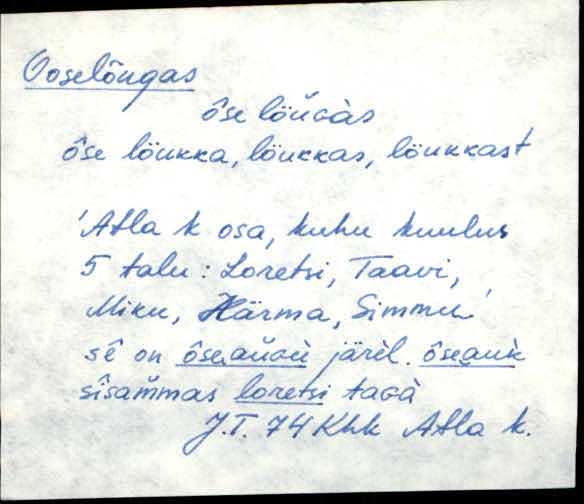 Ooselõngas
ôse löŭGàs
ôse löukka, löukkas, löukkast
'Atla k osa, kuhu kuulus
5 talu: Loretsi, Taavi,
Miku, Härma, Simmu'
sê on ôse‿aŭGù järèl. ôse‿auk
sîsam̆mas loretsi taGà
J.T. 74 Khk Atla k.